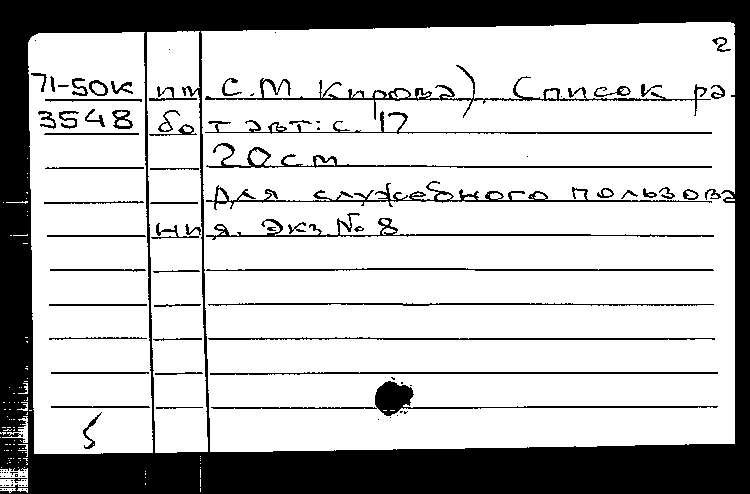 2
71-50к им. С.М. Кирова). Список ра-
3548 бот авт: с. 17
20 см
Для служебного пользова
ния. Экз № 8
5